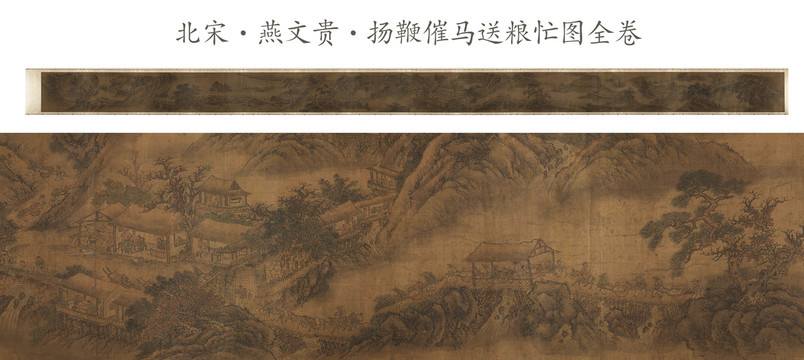 北宋·燕文贵·扬鞭催马送粮忙图全卷